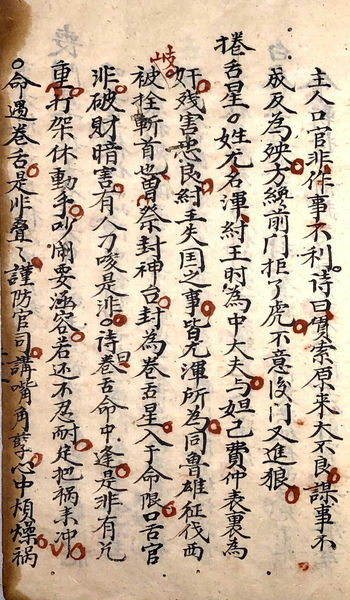 主人口官非作事不利。诗曰貫索原来大不良謀事不
成反為殃方纔前门拒了虎不意後门又進狼
捲舌星。姓尤名渾紂王时為中大夫与妲己費仲表裏為
奸残害忠良紂王失国之事皆尤渾所為同魯雄征伐西
岐
被拴斬首也曾祭封神台封為卷舌星入于命限口舌官
非破財暗害有人刁唆是非。诗曰卷舌命中逢是非有兇
重打架休動手吵闹要涵容若还不忍耐定把祸来冲
。命遇卷舌是非叠々謹防官司講嘴角孽心中煩燥祸